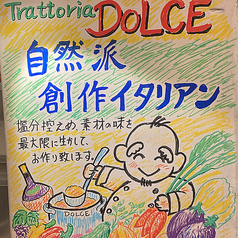 Trattoria DOLCE
自然派
創作イタリアン
塩分控えめ、素材の味を
最大限に生かして、
お作り致します。
DOLCE